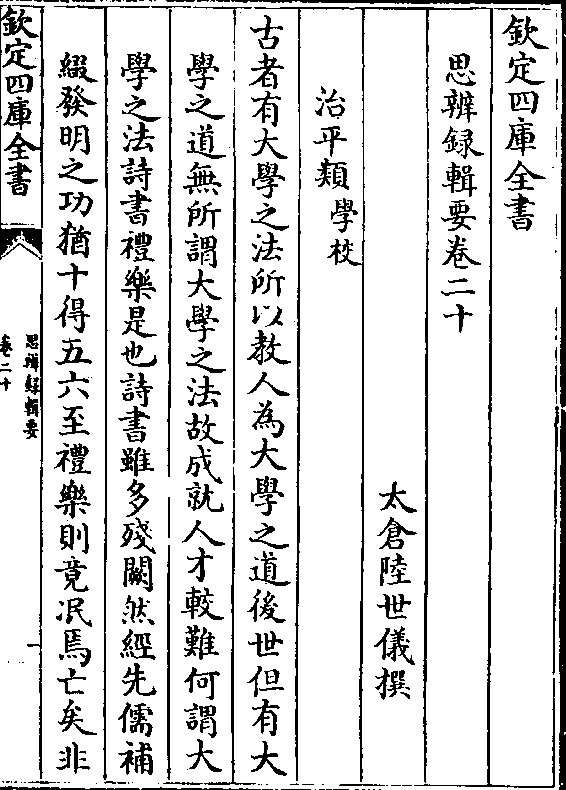 欽定四庫全書
思辨録輯要卷二十
太倉陸世儀撰
治平類 學校
古者有大學之法所以教人為大學之道後世但有大
學之道無所謂大學之法故成就人才較難何謂大
學之法詩書禮樂是也詩書雖多殘闕然經先儒補
綴發明之功猶十得五六至禮樂則竟泯焉亡矣非
欽定四庫全書
思辨録輯要
卷二十
一